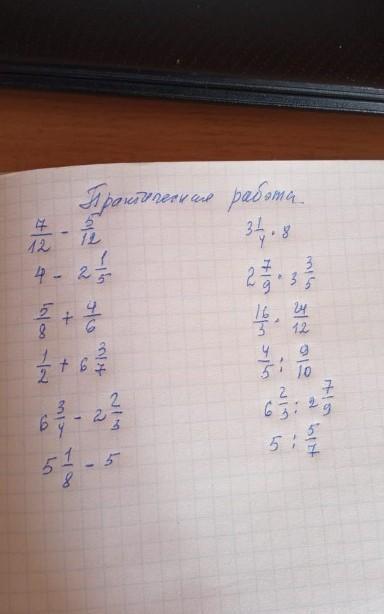 Практическая работа.
7/12 - 5/12
4 - 2 1/5
5/8 + 4/6
1/2 + 6 3/7
6 3/4 - 2 2/3
5 1/8 - 5
3 1/4 · 8
2 7/9 · 3 3/5
16/3 · 24/12
4/5 : 9/10
6 2/3 : 2 7/9
5 : 5/7